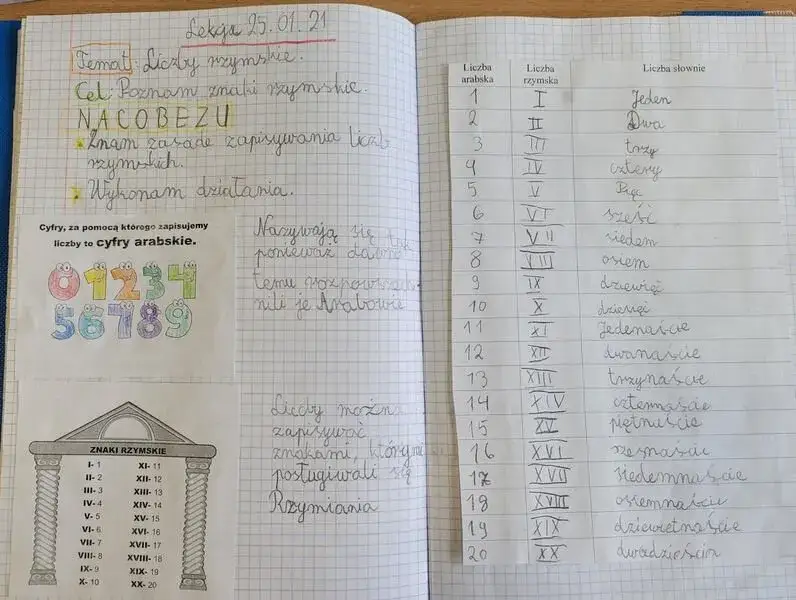 Lekcja 25.01.21
Temat: Liczby rzymskie.
Cel: Poznam znaki rzymskie.
NACOBEZU
Znam zasadę zapisywania liczb
rzymskich.
Wykonam działania.
Cyfry, za pomocą którego zapisujemy
liczby to cyfry arabskie.
0 1 2 3 4
5 6 7 8 9
Nazywają się tak
ponieważ dawno
temu rozpowszech-
nili je Arabowie
ZNAKI RZYMSKIE
I- 1 XI- 11
II- 2 XII- 12
III- 3 XIII- 13
IV- 4 XIV- 14
V- 5 XV- 15
VI- 6 XVI- 16
VII- 7 XVII- 17
VIII- 8 XVIII- 18
IX- 9 XIX- 19
X- 10 XX- 20
Liczby można
zapisywać
znakami, którymi
posługiwali się
Rzymianie
Liczba arabska Liczba rzymska Liczba słownie
1 I Jeden
2 II Dwa
3 III trzy
4 IV cztery
5 V Pięć
6 VI sześć
7 VII siedem
8 VIII osiem
9 IX dziewięć
10 X dziesięć
11 XI Jedenaście
12 XII dwanaście
13 XIII trzynaście
14 XIV czternaście
15 XV piętnaście
16 XVI
17 XVII siedemnaście
18 XVIII osiemnaście
19 XIX dziewiętnaście
20 XX dwadzieścia